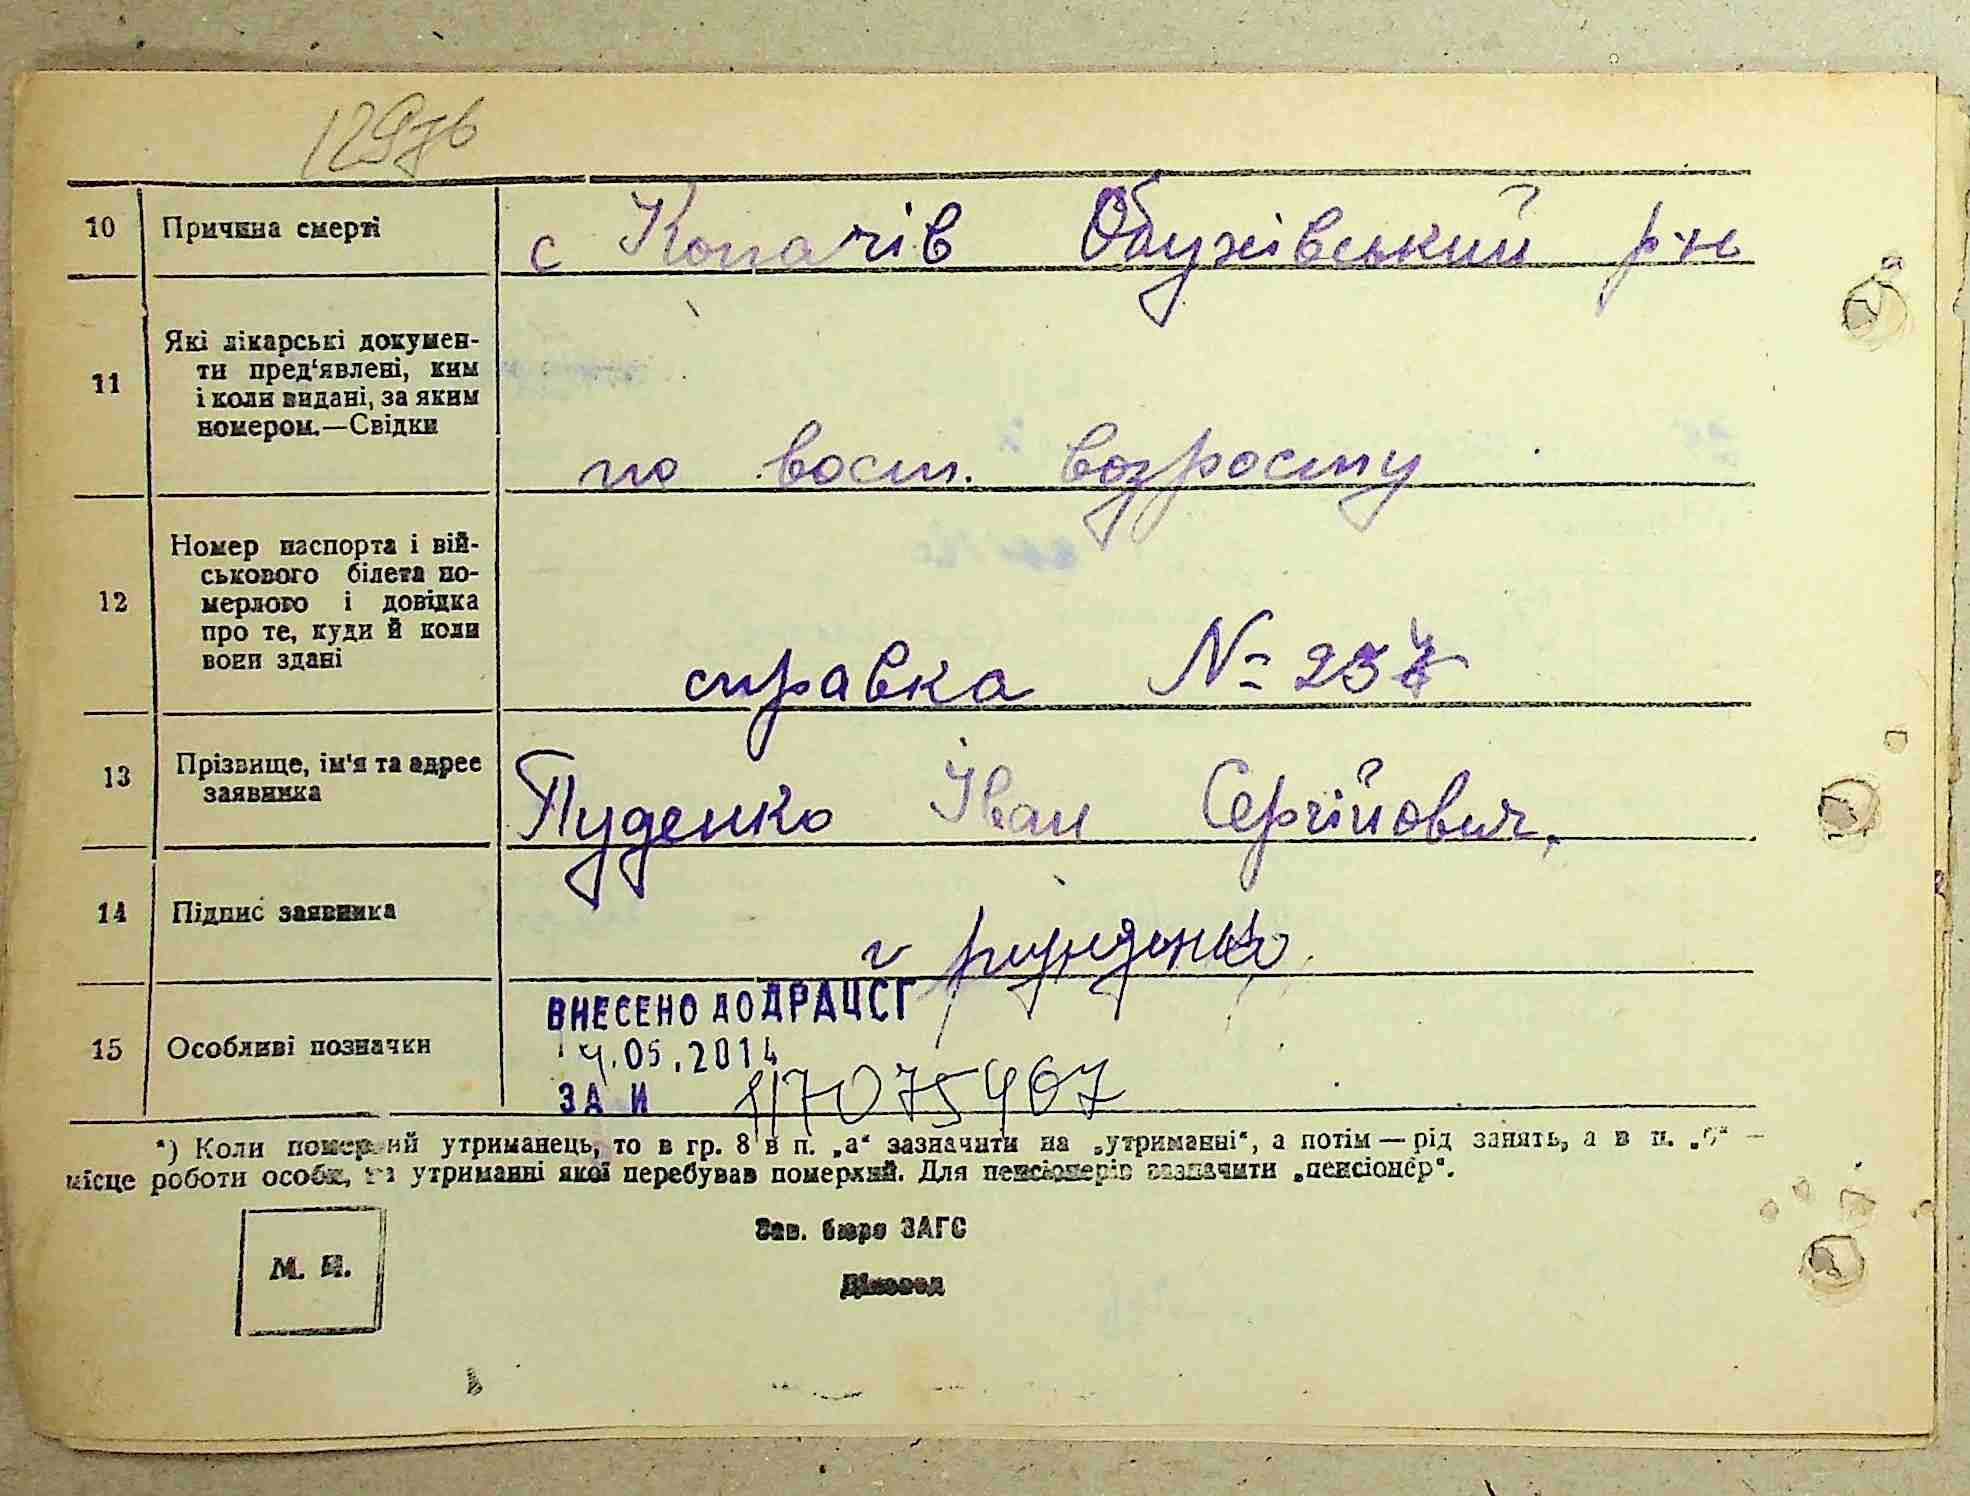 129зв
10 Причина смерті с Копачів Обухівський р-н
11 Які лікарські докумен-
ти пред'явлені, ким
і коли видані, за яким
номером.—Свідки
по вост. возросту
12 Номер паспорта і вій-
ськового білета по-
мерлого і довідка
про те, куди й коли
вони здані
справка № 257
13 Прізвище, ім'я та адрес
заявника
Пуденко Іван Сергійович,
14 Підпис заявника
15 Особливі позначки
ВНЕСЕНО ДО ДРАЦСГ
.05.2014
ЗА И
*) Коли померлий утриманець, то в гр. 8 в п. „а“ зазначити на „утриманні“, а потім — рід занять, а в п. „б“ —
місце роботи особи, на утриманні якої перебував померлий. Для пенсіонерів зазначити „пенсіонер“.
Зав. бюро ЗАГС
М. П.
Діловод